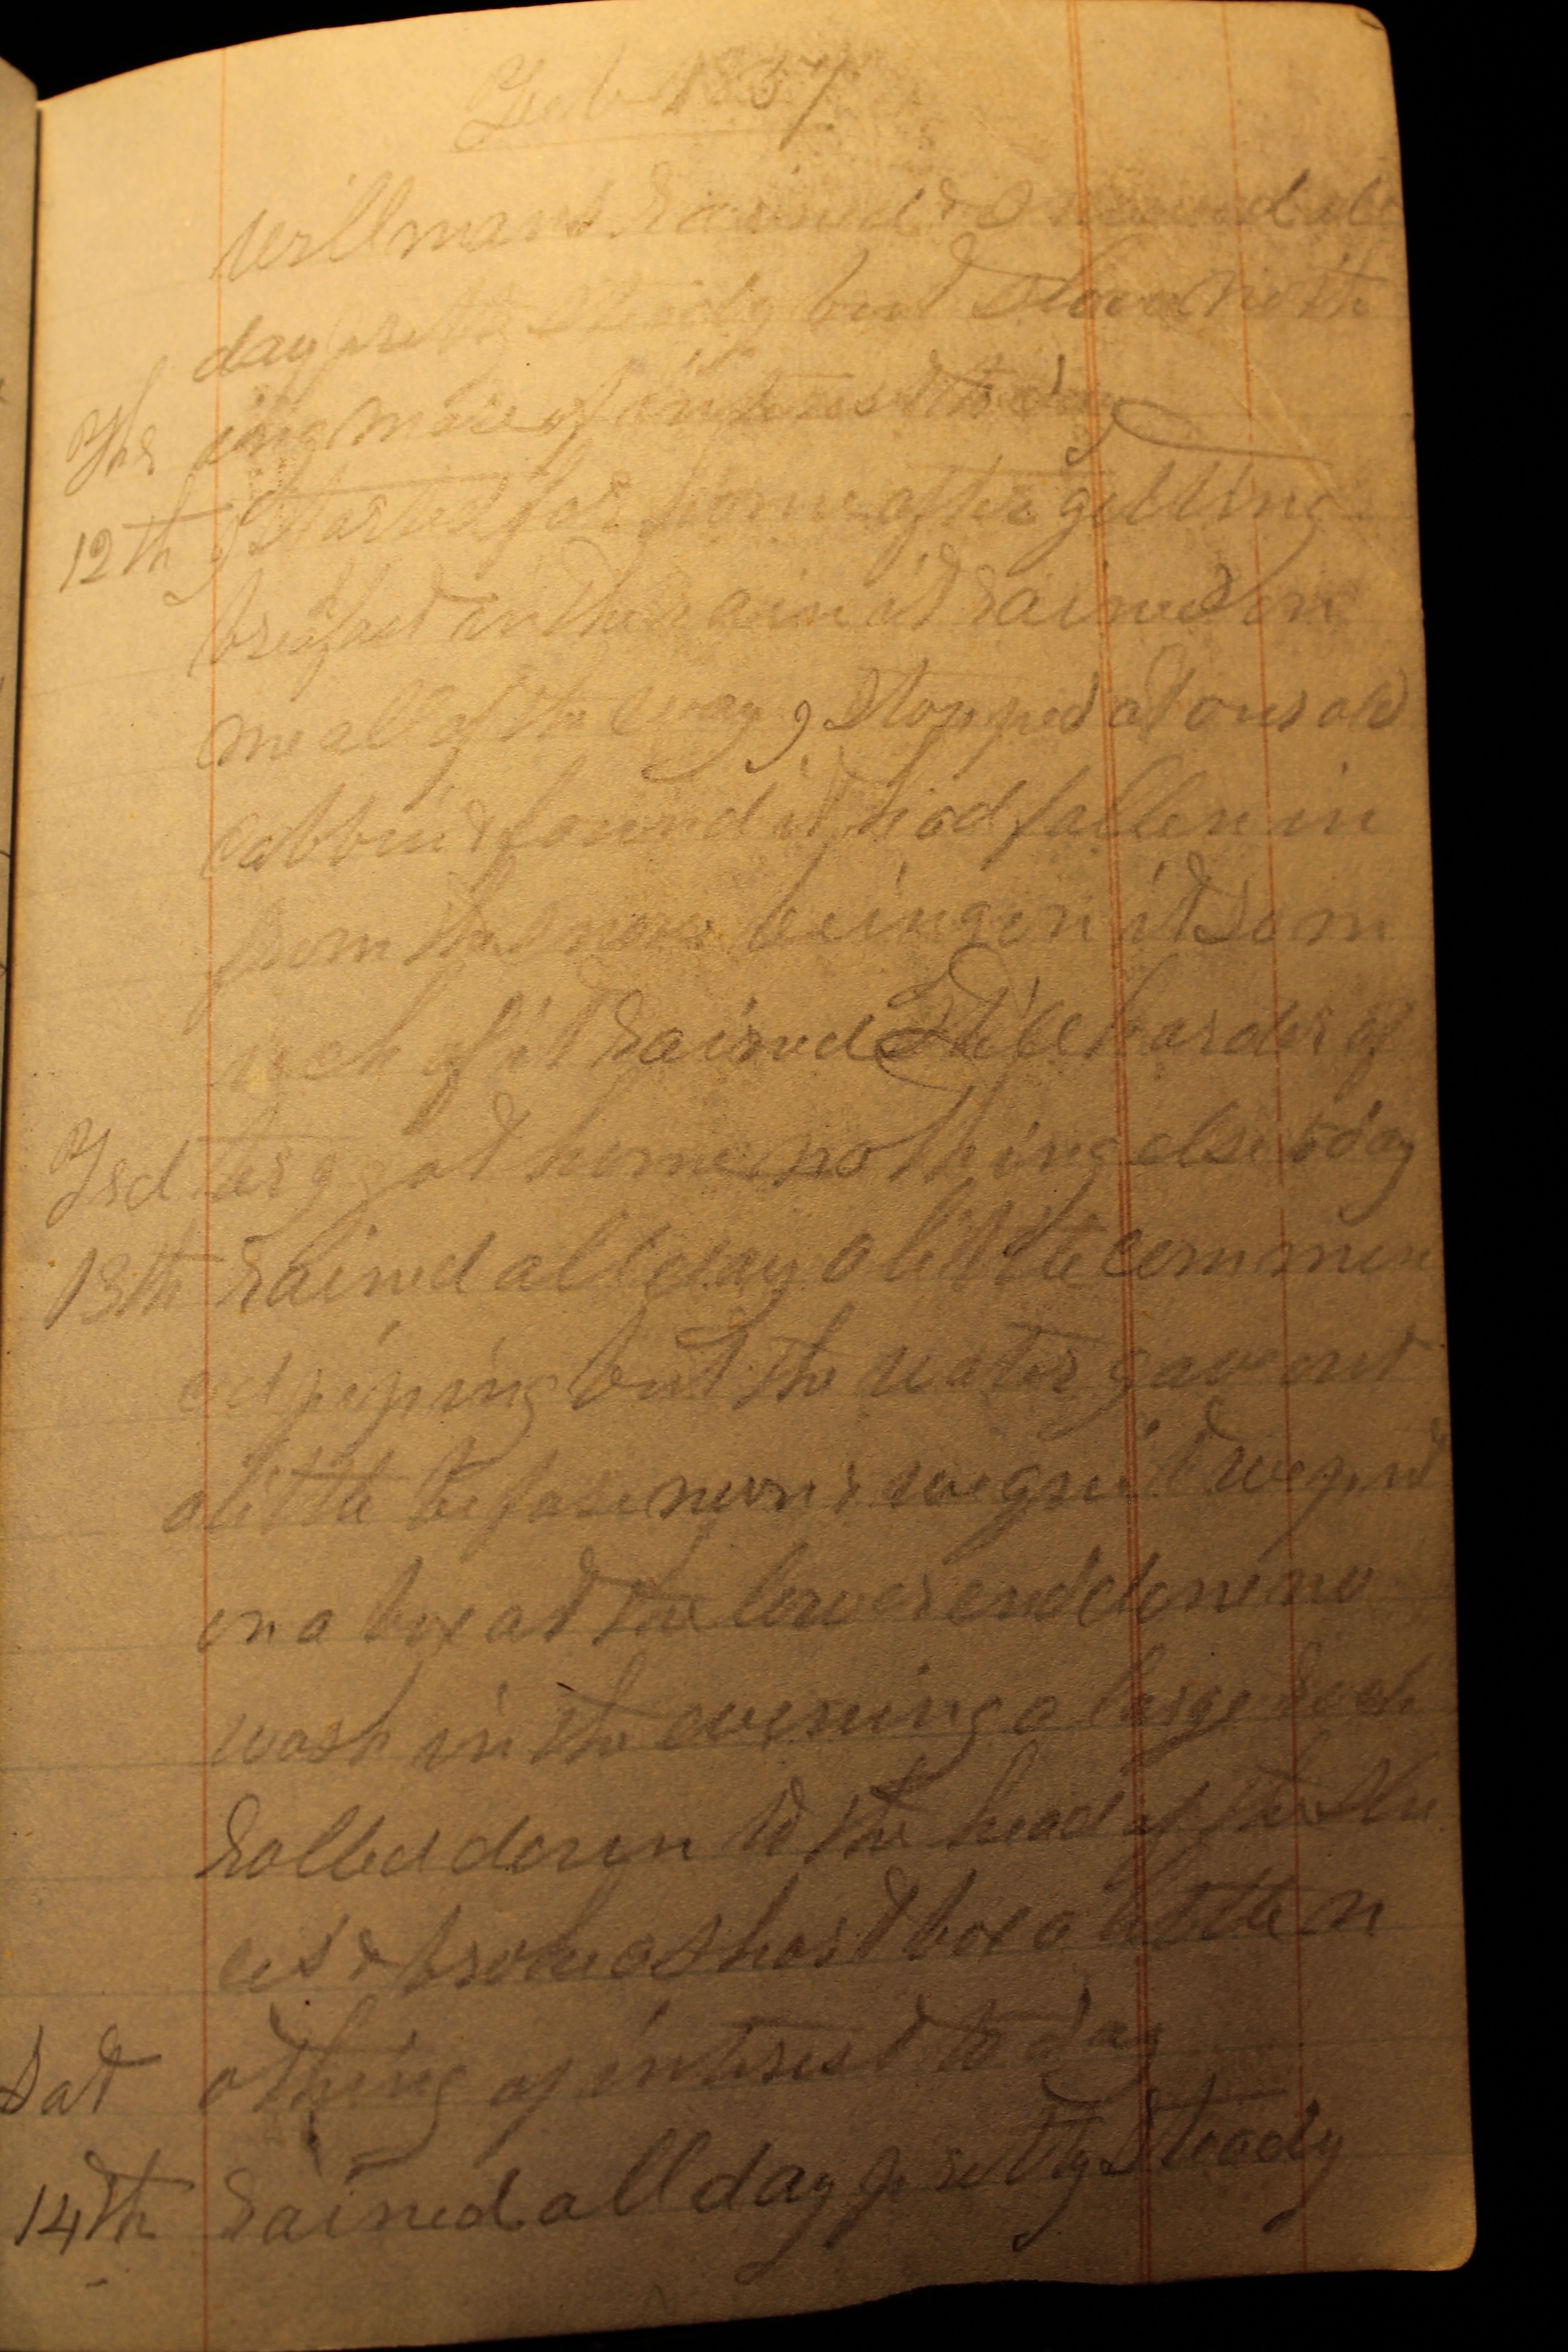 Feb 1857
Willmans Rained & Snowed all
day pretty steady but slow noth
Ths ing more of interest to day
12th I Started for home after getting
brekfast in the rain it Rained on
me all of the way I Stopped at our old
cabbin & found it had fallen in
from the snow being on it So m
uch of it Rained Still harder af
Frd ter I got home nothing else to day
13th Rained all day a little commen
ced piping but the water gave out
a little before noon & we quit we put
in a box at the lower end done no
wash in the evening a large Rock
Rolled down to the head of the Slu
ces & broke a short box a little n
Sat othing of interest to day
14th Rained all day pretty Steady